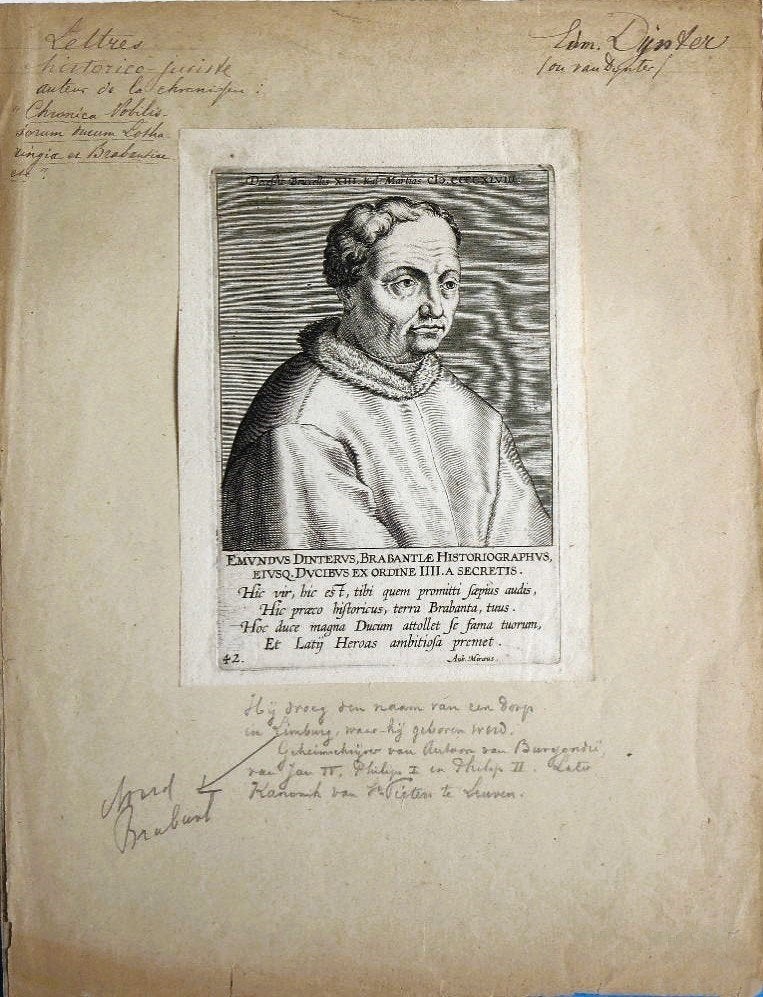 Lettres
historico-juriste
auteur de la chronique :
"Chronica Nobilis-
sorum Ducum Lotha-
ringia et Brabantiae
etc".
Edm. Dijnter
(ou van Dijnter)
Decessit Bruxellis XIII. Kal. Martias. CIƆ.CCCCXLVIII.
EMVNDVS DINTERVS, BRABANTIÆ HISTORIOGRAPHVS,
EIVSQ. DVCIBVS EX ORDINE IIII. A SECRETIS.
Hic vir, hic est, tibi quem promitti sæpius audis,
Hic præco historicus, terra Brabanta, tuus.
Hoc duce magna Ducum attollet se fama tuorum,
Et Latij Heroas ambitiosa premet.
42.
Aub. Miræus.
Hij droeg den naam van een dorp
in Limburg, waar hij geboren werd.
Geheimschrijver van Antoon van Burgondië,
van Jan IV, Philips I en Philip II. Later
Kanonik van St Pieter te Leuven.
Noord
Brabant